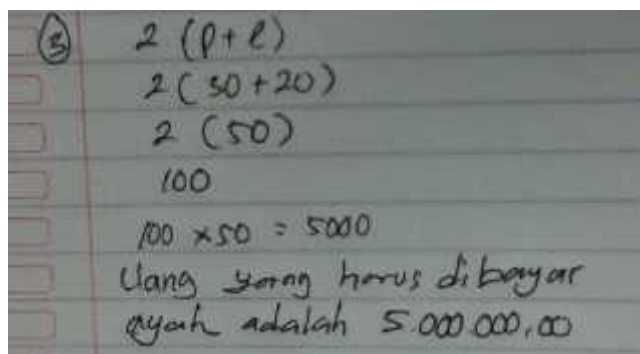 ③ 2 (p+l)
2 (30+20)
2 (50)
100
100 × 50 = 5000
Uang yang harus dibayar
ayah adalah 5.000.000,00